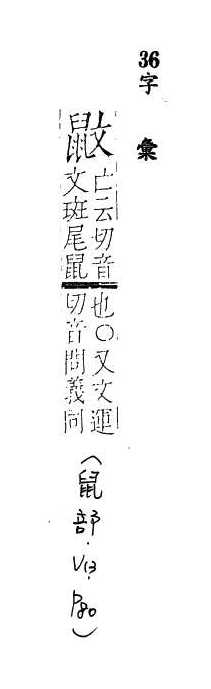 36字彙
鼤
亡云切音
文斑尾鼠
也〇又文運
切音問義同
（鼠部．V13．P80）